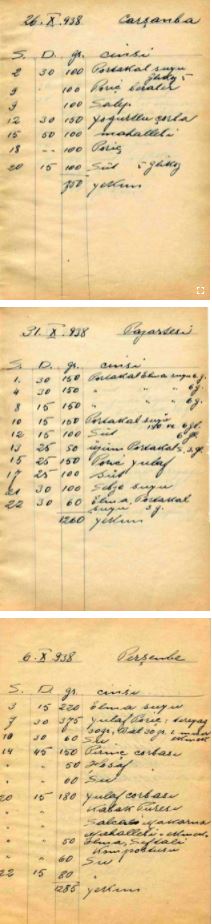 26. X. 938 Çarşanba
S. D. gr. cinsi
2 30 100 Portakal suyu
glikoz 5
9 " 100 Poriç
9 100 Salep
12 30 150 Yoğurtlu çorba
15 50 100 mahallebi
18 " 100 Poriç
20 15 100 Süt 5 glikoz
750 yekûn
31. X. 938 Pazartesi
S. D. gr. cinsi
1. 30 150 Portakal Elma suyu 6 g.
4 30 150 " " " 6 g.
8 15 150 " " " 6 g.
10 15 150 Portakal suyu
12 15 100 Süt 6 g.
13 25 50 üzüm Portakal S. 3. g.
15 25 150 Poriç yulaf
17 25 100 Süt
21 30 100 Sebze suyu
22 30 60 Elma, Portakal
suyu 3 g.
1260 yekûn
6. X. 938 Perşembe
S. D. gr. cinsi
3 15 220 Elma suyu
7 30 375 yulaf Poriç, tereyağ
10 30 60 Su
14 45 150 Pirinç çorbası
" " 50 Hoşaf
" " 60 Su
20 15 180 yulaf çorbası
" " Kabak Püresi
" " Salçalı Makarna
Mahallebi
" " 50 Elma, Şeftali
Kompostusu
" " 60 Su
22 15 80 "
1285 yekûn